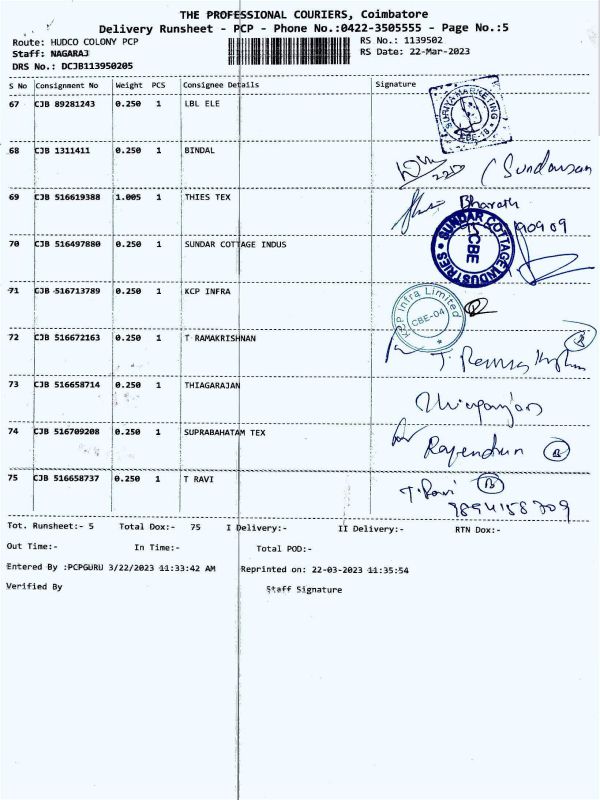 THE PROFESSIONAL COURIERS, Coimbatore
Delivery Runsheet - PCP - Phone No.:0422-3505555 - Page No.:5
Route: HUDCO COLONY PCP RS No.: 1139502
Staff: NAGARAJ RS Date: 22-Mar-2023
DRS No.: DCJB113950205
S No Consignment No Weight PCS Consignee Details Signature
67 CJB 89281243 0.250 1 LBL ELE
MARKETING
CBE-18
68 CJB 1311411 0.250 1 BINDAL
(Sundaresan
69 CJB 516619388 1.005 1 THIES TEX Bharath
70 CJB 516497880 0.250 1 SUNDAR COTTAGE INDUS
SUNDAR COTTAGE INDUSTRIES
CBE
71 CJB 516713789 0.250 1 KCP INFRA
KCP Infra Limited
CBE-04
72 CJB 516672163 0.250 1 T RAMAKRISHNAN
73 CJB 516658714 0.250 1 THIAGARAJAN
74 CJB 516709208 0.250 1 SUPRABAHATAM TEX Rajendran
75 CJB 516658737 0.250 1 T RAVI T. Ravi
9894158709
Tot. Runsheet:- 5 Total Dox:- 75 I Delivery:- II Delivery:- RTN Dox:-
Out Time:- In Time:- Total POD:-
Entered By :PCPGURU 3/22/2023 11:33:42 AM Reprinted on: 22-03-2023 11:35:54
Verified By Staff Signature